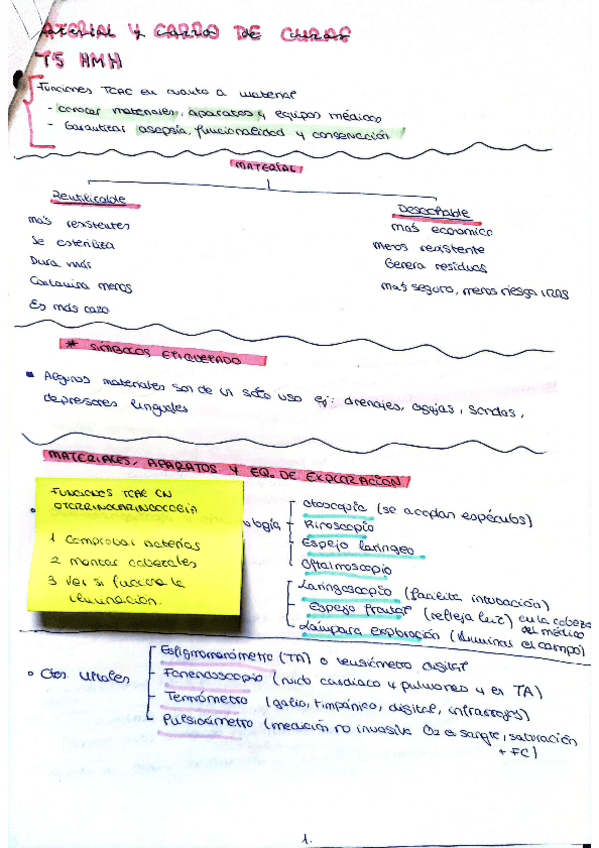 MATERIAL Y CARROS DE CURAS
T5 HMH
Funciones TCAE en cuanto a material
- conocer materiales, aparatos y equipos médicos
- Garantizar asepsia, funcionalidad y conservación
MATERIAL
Reutilizable
más resistentes
Se esteriliza
Dura más
Contamina menos
Es más caro
Desechable
más economico
menos resistente
Genera residuos
más seguro, menos riesgo IRAS
* SÍMBOLOS ETIQUETADO
Algunos materiales son de un solo uso ej: drenajes, agujas, sondas,
depresores linguales
MATERIALES, APARATOS Y EQ. DE EXPLORACIÓN
FUNCIONES TCAE EN
OTORRINOLARINGOLOGÍA
1 Comprobar baterías
2 montar cabezales
3 Ver si funciona la
iluminación.
ología
otoscopio (se acoplan espéculos)
Rinoscopio
Espejo laringeo
Oftalmoscopio
Laringoscopio (facilita intubación)
Espejo frontal (refleja luz) en la cabeza
del médico
Lámpara exploración (iluminas el campo)
Ctes. Vitales
Esfigmomanómetro (TA) o tensiómetro digital
Fonendoscopio (ruido cardiaco y pulmones y es TA)
Termómetro (galio, timpánico, digital, infrarrojos)
Pulsioxímetro (medición no invasiva O2 es sangre, saturación
+ FC)
1.